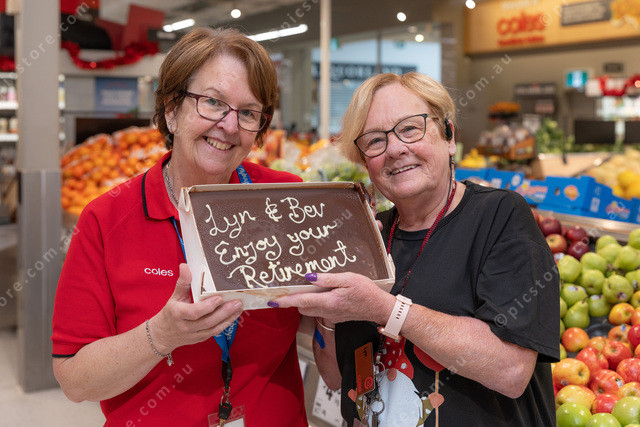 coles
Lyn & Bev
Enjoy your
Retirement
coles
© picstore.com.au